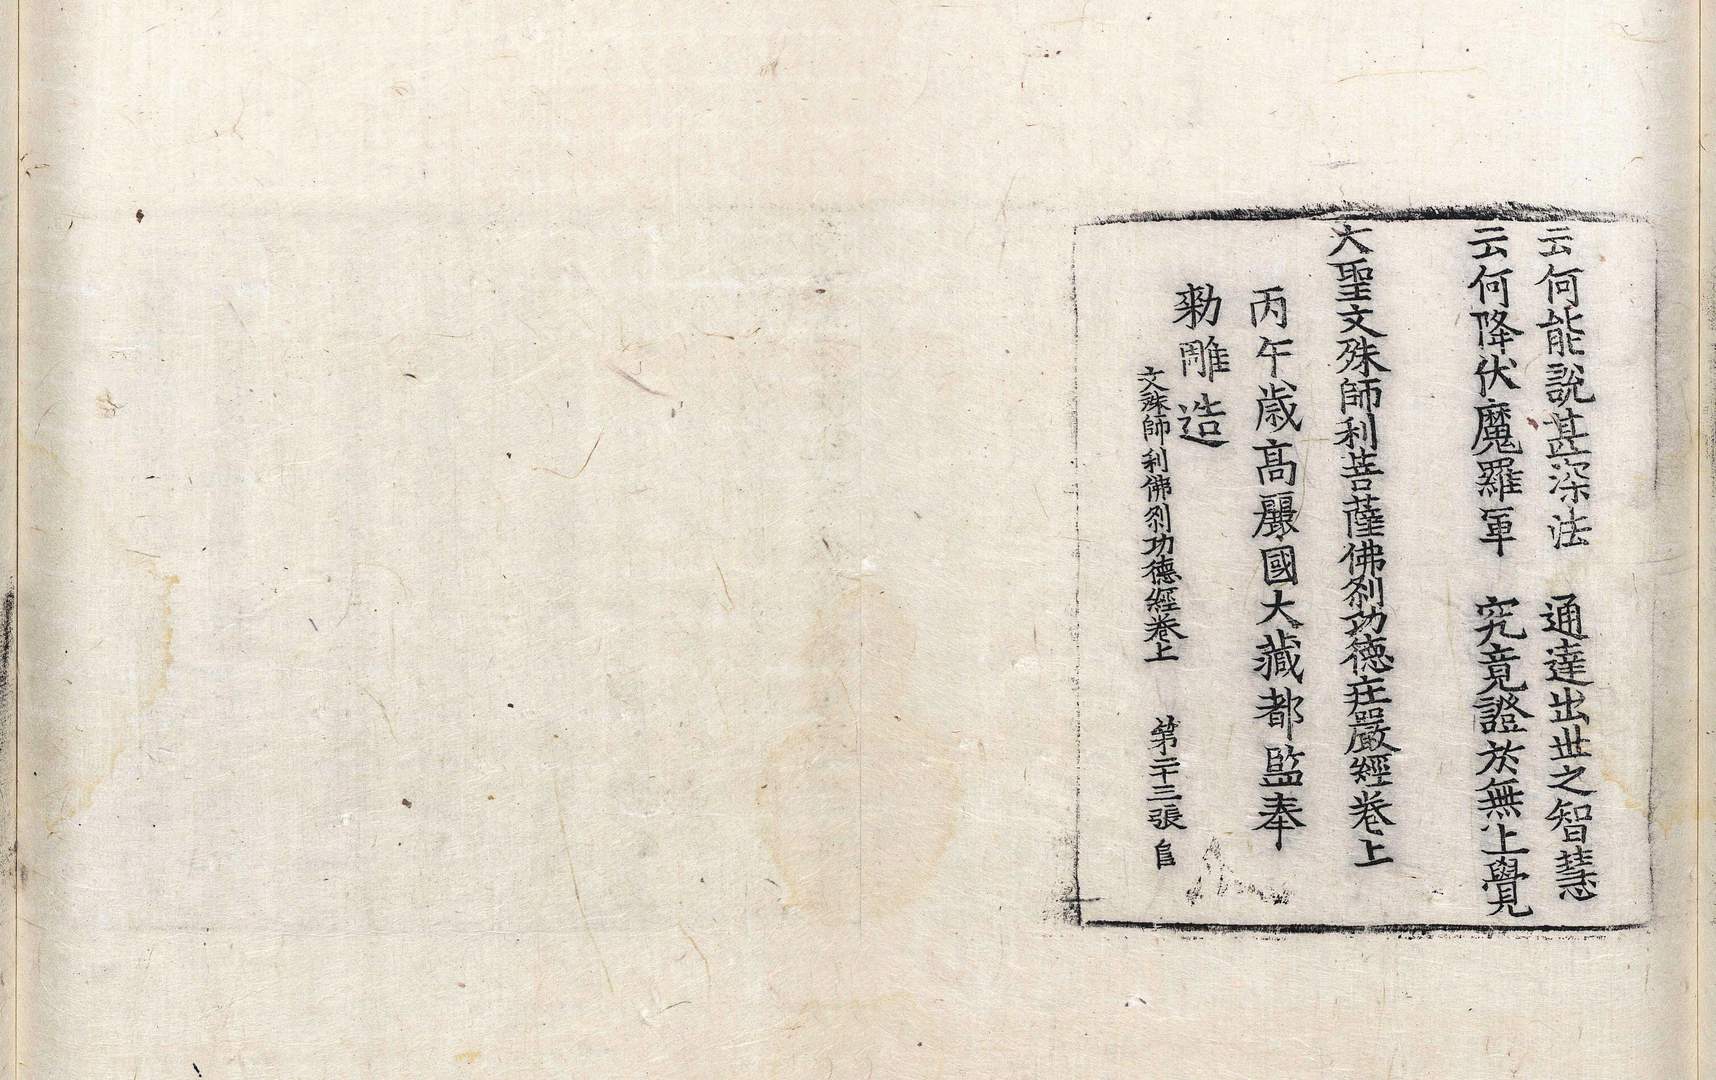 云何能說甚深法　通達出世之智慧
云何降伏魔羅軍　究竟證於無上覺
大聖文殊師利菩薩佛刹功德莊嚴經卷上
丙午歲高麗國大藏都監奉
勑雕造
文殊師利佛刹功德經卷上　第二十三張